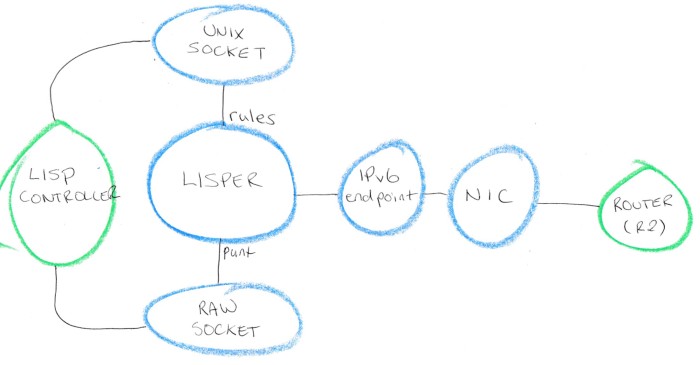 UNIX
SOCKET
rules
LISP
CONTROLLER
LISPER
IPv6
endpoint
NIC
ROUTER
(R2)
punt
RAW
SOCKET